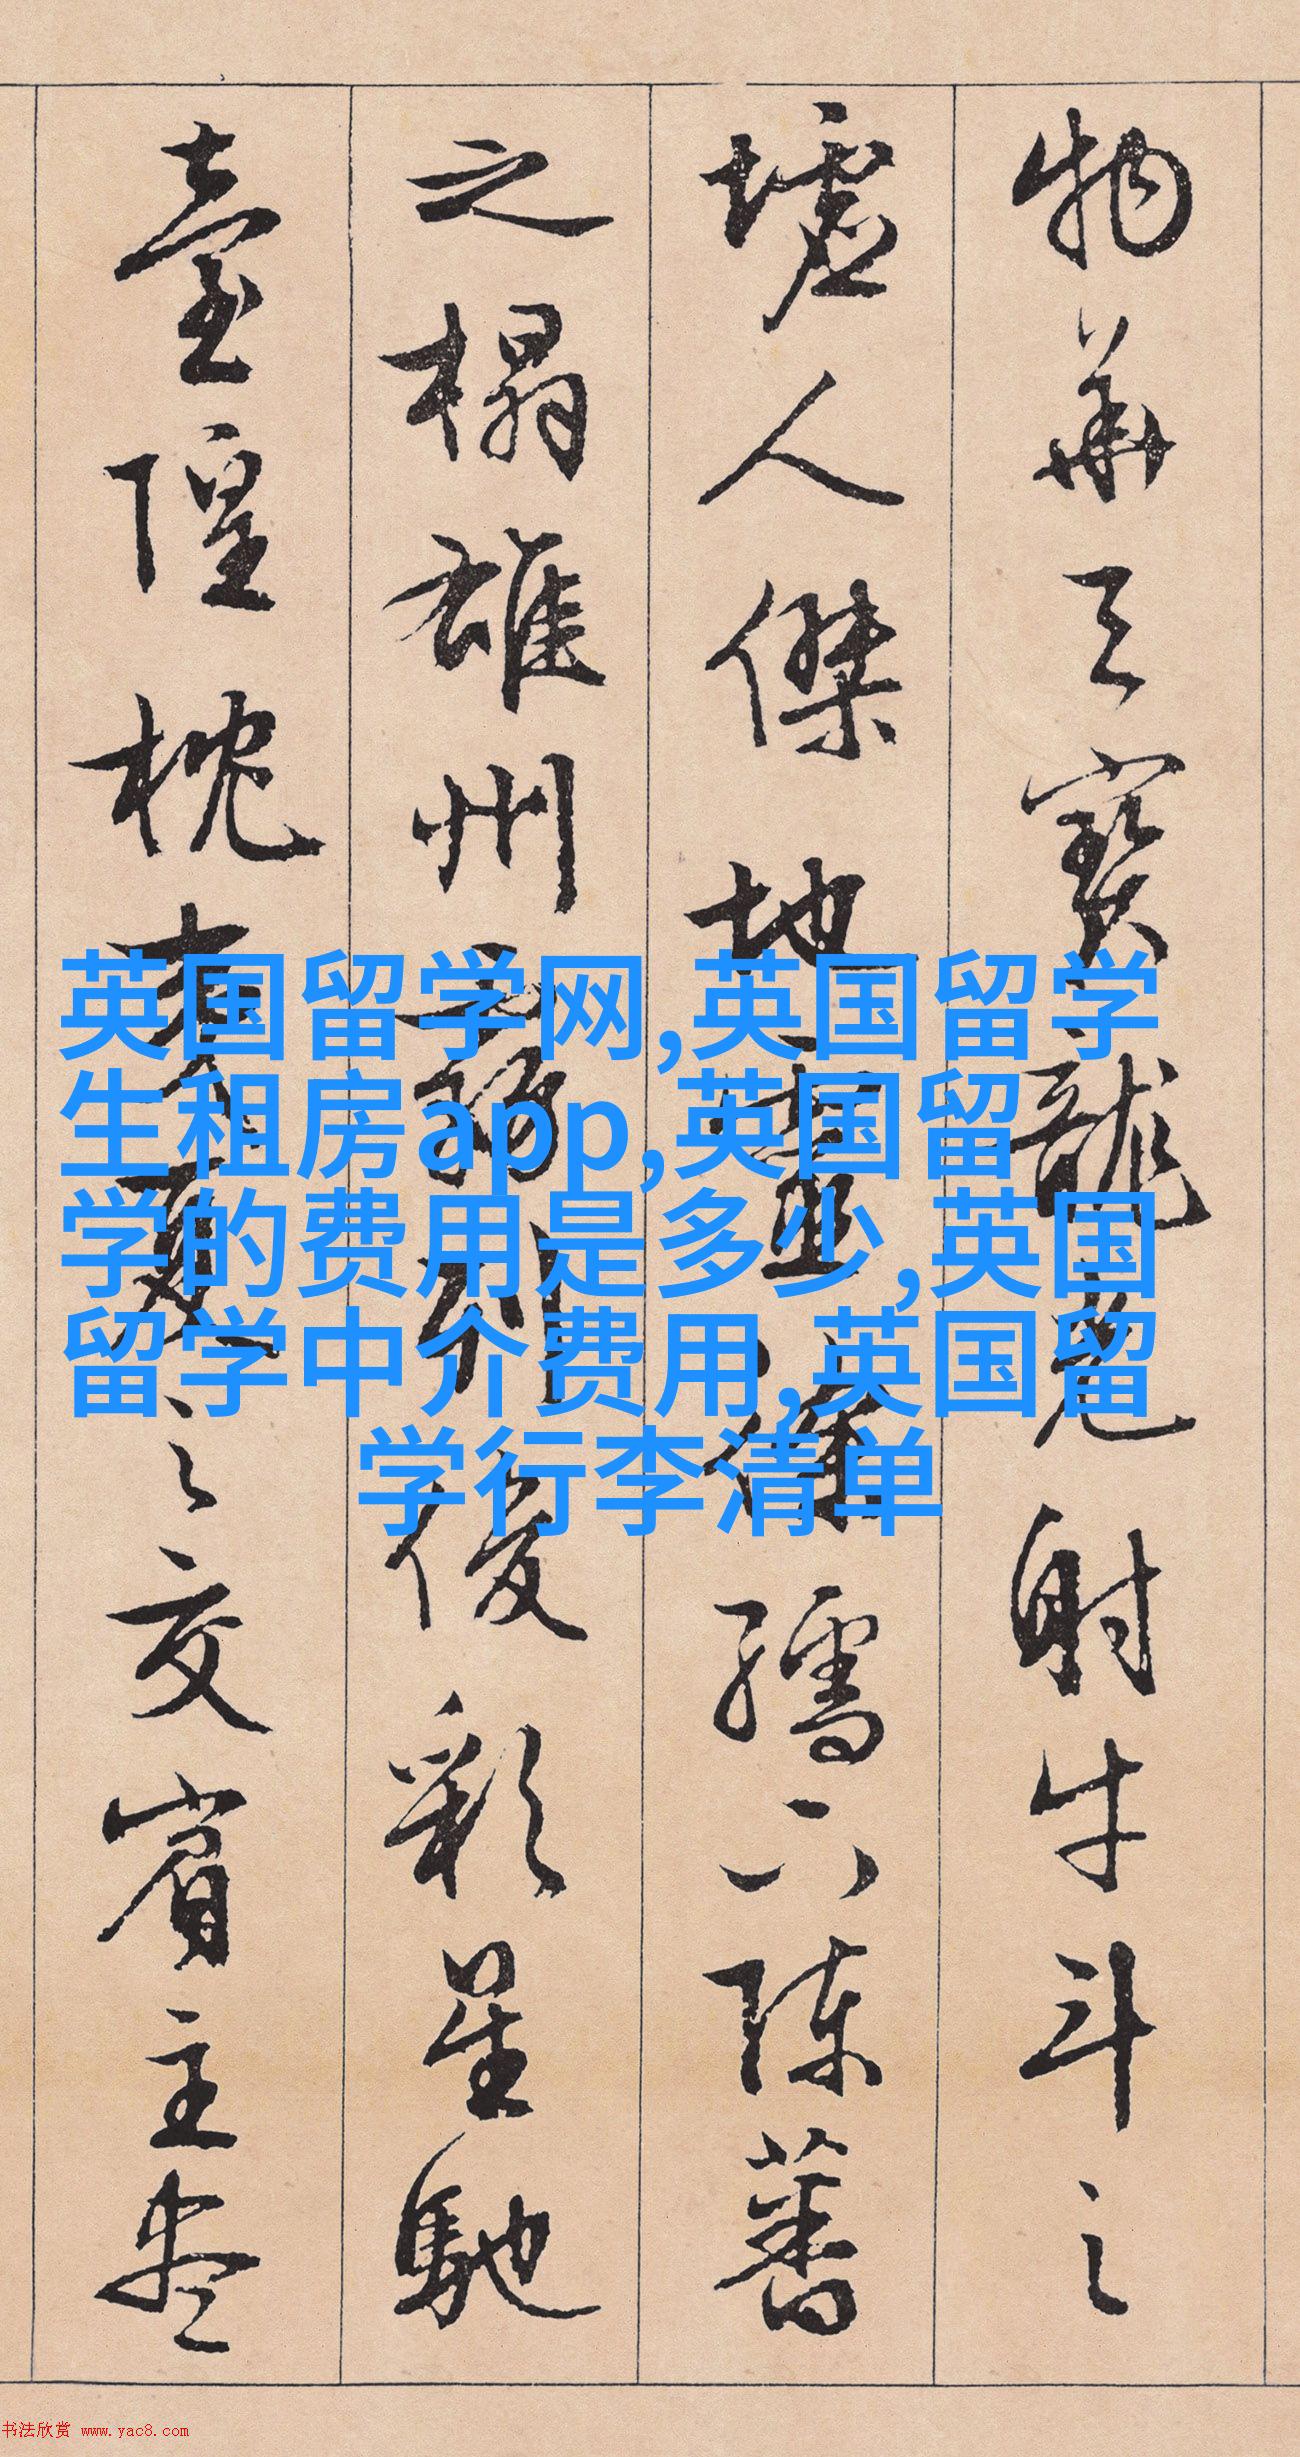 物華天寶龍光射牛斗之
墟人傑地靈徐孺下陳蕃
之榻雄州霧列俊彩星馳
臺隍枕夷夏之交賓主盡
英国留学网,英国留学
生租房app,英国留
学的费用是多少,英国
留学中介费用,英国留
学行李清单
书法欣赏 www.yac8.com